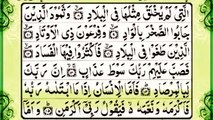 الَّتِي لَمْ يُخْلَقْ مِثْلُهَا فِي الْبِلَادِ ۝ وَثَمُودَ الَّذِينَ
جَابُوا الصَّخْرَ بِالْوَادِ ۝ وَفِرْعَوْنَ ذِي الْأَوْتَادِ ۝
الَّذِينَ طَغَوْا فِي الْبِلَادِ ۝ فَأَكْثَرُوا فِيهَا الْفَسَادَ ۝
فَصَبَّ عَلَيْهِمْ رَبُّكَ سَوْطَ عَذَابٍ ۝ إِنَّ رَبَّكَ
لَبِالْمِرْصَادِ ۝ فَأَمَّا الْإِنْسَانُ إِذَا مَا ابْتَلٰهُ رَبُّهُ
فَأَكْرَمَهُ وَنَعَّمَهُ ۝ فَيَقُولُ رَبِّي أَكْرَمَنِ ۝ وَأَمَّا